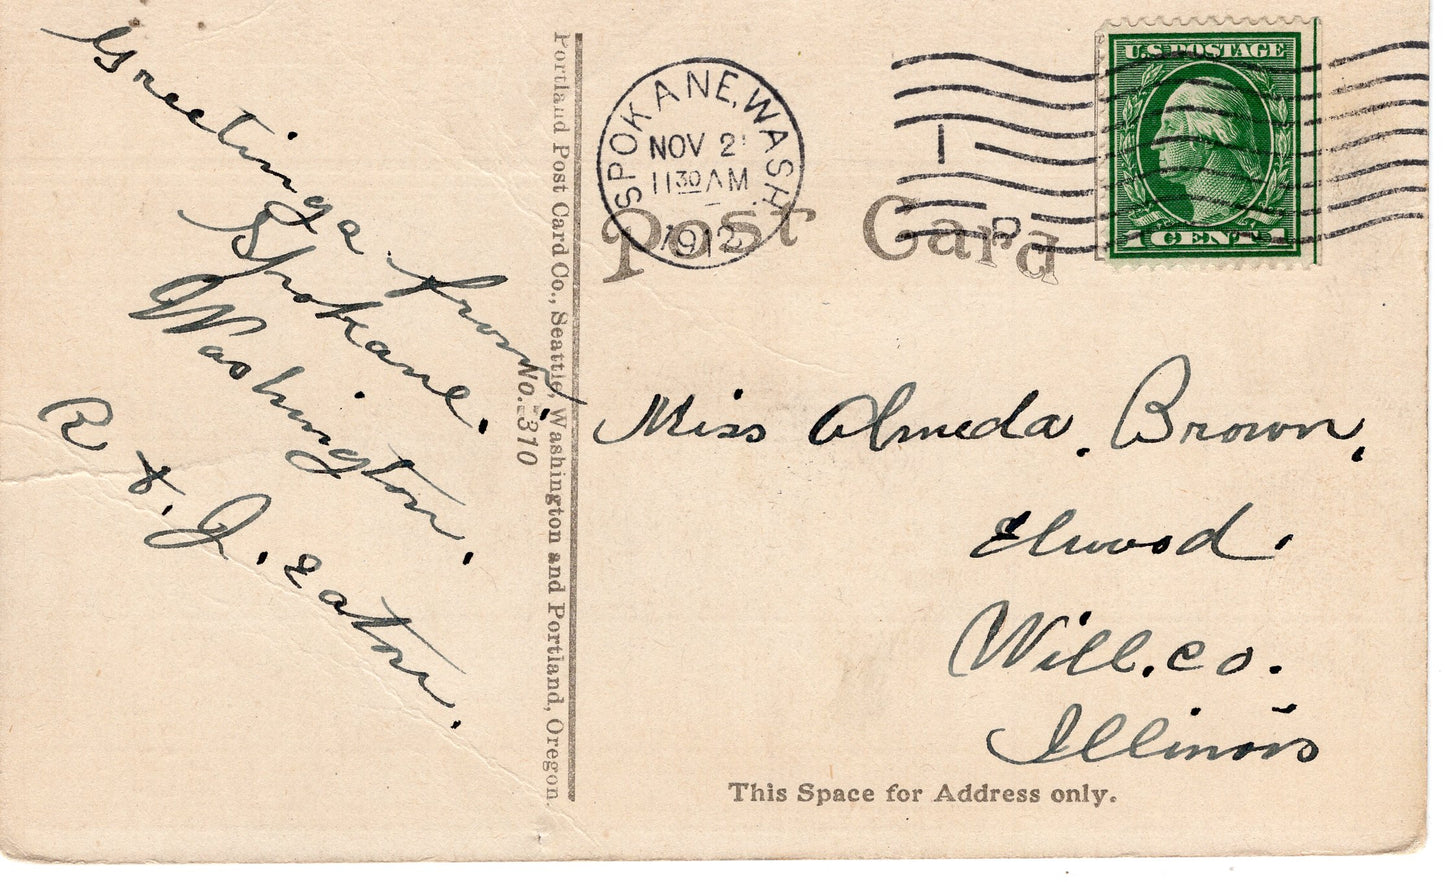 Greetings from
Spokane.
Washington.
R & J. Eaton.
Portland Post Card Co., Seattle, Washington and Portland, Oregon.
No. 1310
SPOKANE, WASH.
NOV 21
11 30 AM
1912
1
D
U.S. POSTAGE
1 CENT 1
Post Card
Miss Almeda. Brown.
Elwood.
Will. Co.
Illinois
This Space for Address only.